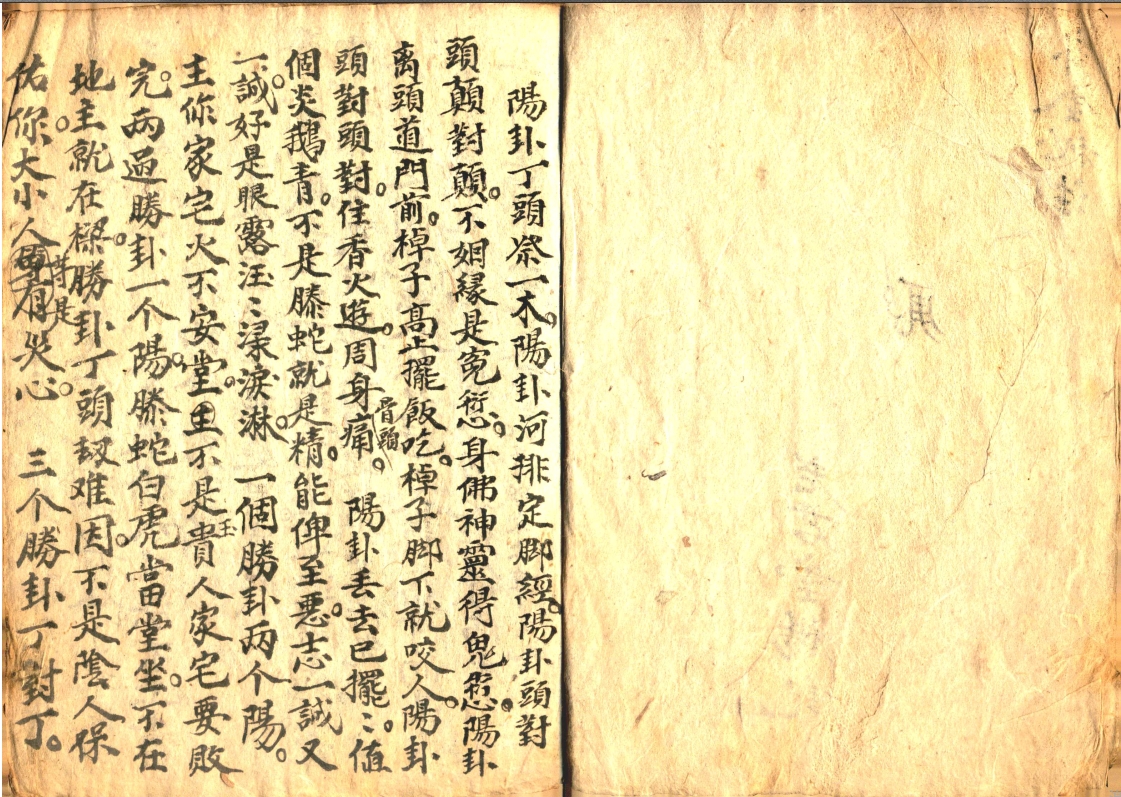 陽卦丁頭祭一木。陽卦河排定脚經。陽卦頭對
頭顛對顛。不姻緣是冤愆。身佛神靈得鬼惹。陽卦
离頭道門前。棹子高上擺飯吃。棹子脚下就咬人。陽卦
頭對頭對住香火遊。周身骨頭痛。陽卦丢去已擺〻值
個炎鵝青。不是騰蛇就是精。能俾至惡志一誠又
一誠。好是眼露汪〻淚淋。一個勝卦兩个陽。
主你家宅火不安堂。主不是貴玉人家宅要敗
完。兩過勝卦一个陽。騰蛇白虎當堂坐。不在
地主就在樑。勝卦丁頭刼难因。不是陰人保
佑你。大小人有災心。三个勝卦丁對丁。